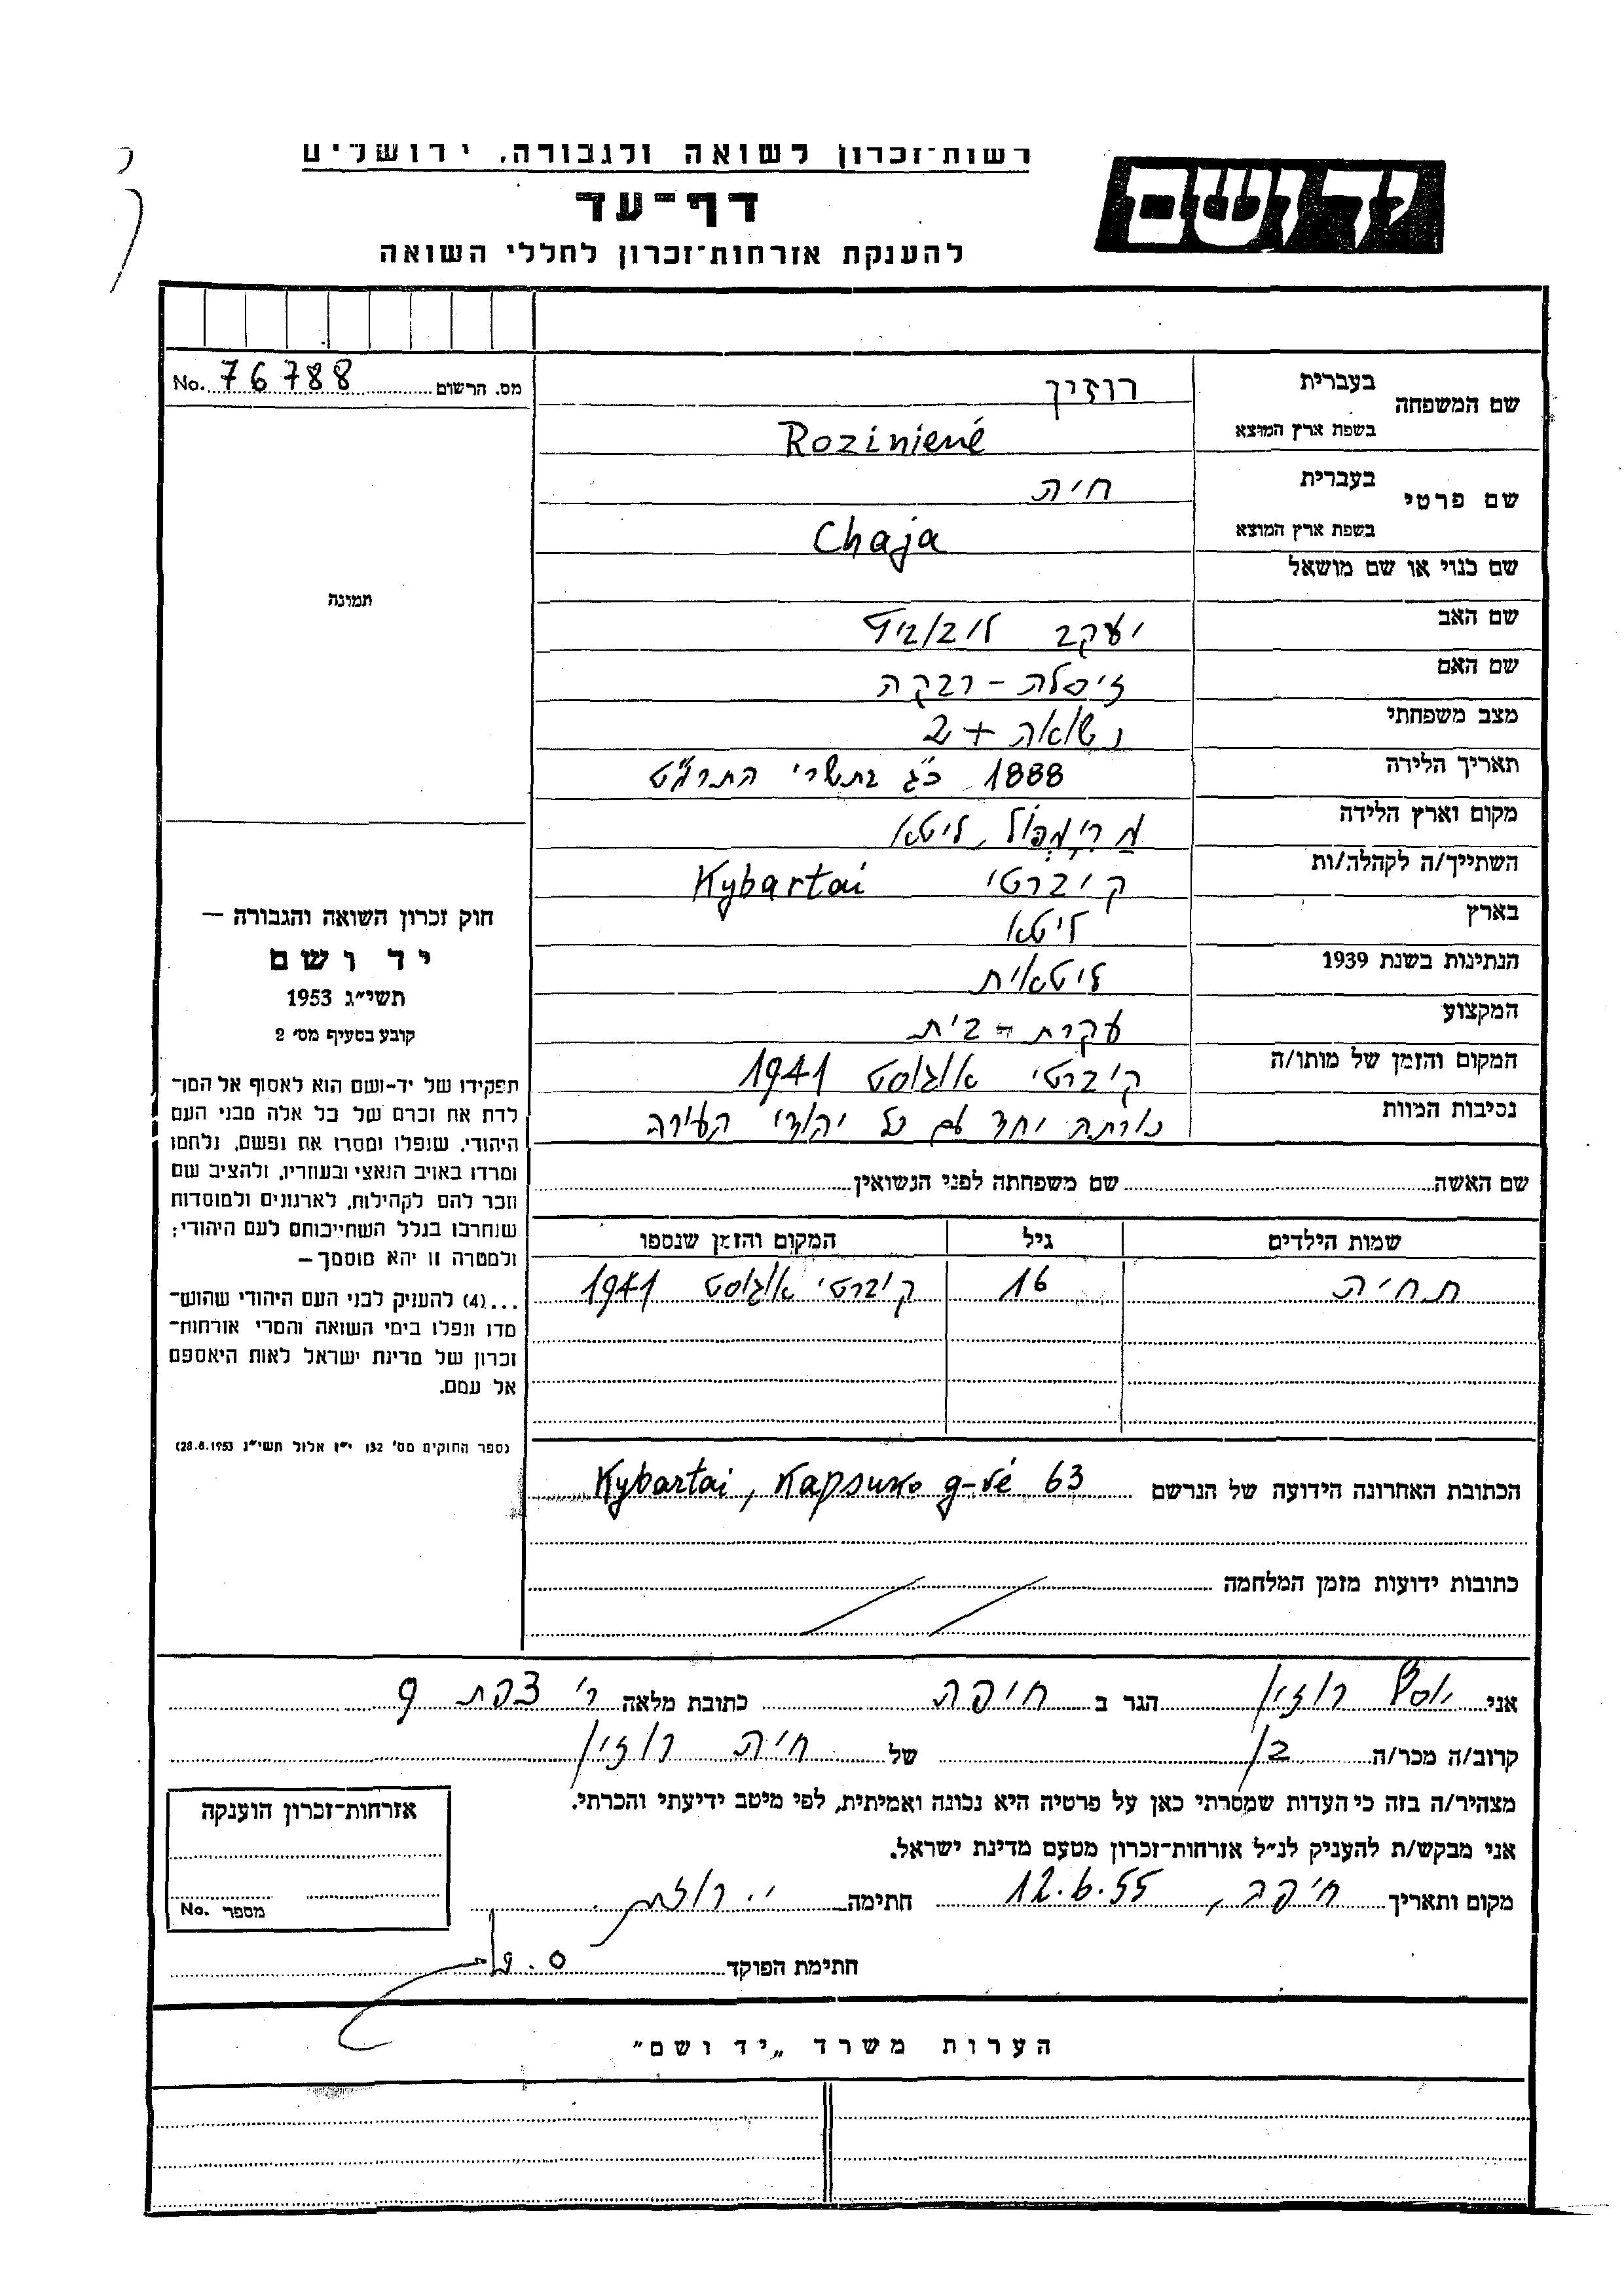 רשות־זכרון לשואה ולגבורה, ירושלים
יד ושם
דף־עד
להענקת אזרחות־זכרון לחללי השואה
מס. הרשום 76788 No.
שם המשפחה
בעברית רוזין
בשפת ארץ המוצא Rozinienė
שם פרטי
בעברית חיה
בשפת ארץ המוצא Chaja
שם כנוי או שם מושאל
שם האב יעקב
שם האם זיסלה - רבקה
מצב משפחתי נשואה + 2
תאריך הלידה 1888 כ"ג בתשרי התרמ"ט
מקום וארץ הלידה מרימפול, ליטא
השתייך/ה לקהלה/ות קיברטי Kybartai
בארץ ליטא
הנתינות בשנת 1939 ליטאית
המקצוע עקרת - בית
המקום והזמן של מותו/ה קיברטי אוגוסט 1941
נסיבות המוות נורתה יחד עם כל יהודי העירה
שם האשה
שם משפחתה לפני הנשואין
שמות הילדים
גיל
המקום והזמן שנספו
תחיה 16 קיברטי אוגוסט 1941
תמונה
חוק זכרון השואה והגבורה —
יד ושם
תשי״ג 1953
קובע בסעיף מס׳ 2
תפקידו של יד-ושם הוא לאסוף אל המו־
לדת את זכרם של כל אלה מבני העם
היהודי, שנפלו ומסרו את נפשם, נלחמו
ומרדו באויב הנאצי ובעוזריו, ולהציב שם
וזכר להם לקהילות, לארגונים ולמוסדות
שנחרבו בגלל השתייכותם לעם היהודי;
ולמטרה זו יהא מוסמך—
...(4) להעניק לבני העם היהודי שהוש־
מדו ונפלו בימי השואה והמרי אזרחות־
זכרון של מדינת ישראל לאות היאספם
אל עמם.
(ספר החוקים מס׳ 132 י״ז אלול תשי״ג 28.8.1953)
הכתובת האחרונה הידועה של הנרשם Kybartai, Kapsuko g-vė 63
כתובות ידועות מזמן המלחמה
אני יוסף רוזין הגר ב חיפה כתובת מלאה ר' צפת 9
קרוב/ה מכר/ה בן של חיה רוזין
מצהיר/ה בזה כי העדות שמסרתי כאן על פרטיה היא נכונה ואמיתית, לפי מיטב ידיעתי והכרתי.
אני מבקש/ת להעניק לנ״ל אזרחות־זכרון מטעם מדינת ישראל.
מקום ותאריך חיפה, 12.6.55 חתימה י. רוזין
חתימת הפוקד
אזרחות־זכרון הוענקה
מספר No.
הערות משרד „יד ושם״